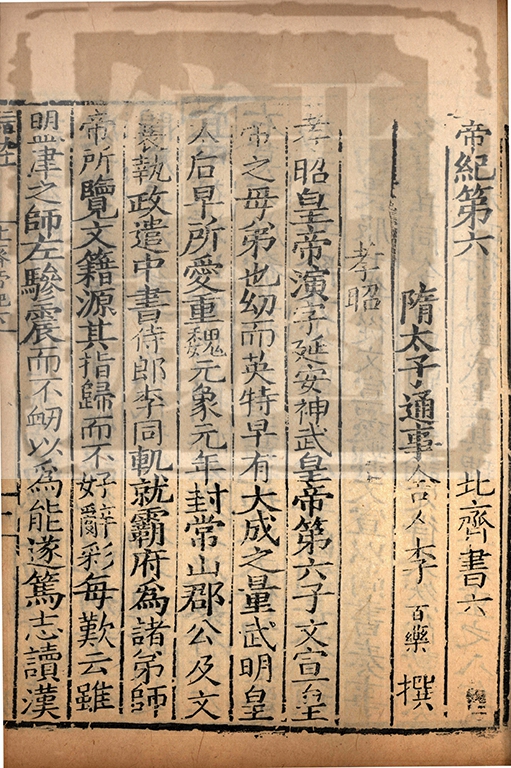 帝紀第六 北齊書六
隋太子通事舍人李百藥撰
孝昭
孝昭皇帝演字延安神武皇帝第六子文宣皇
帝之母弟也幼而英特早有大成之量武明皇
太后早所愛重魏元象元年封常山郡公及文
襄執政遣中書侍郎李同軌就霸府為諸弟師
帝所覽文籍源其指歸而不好辭彩每歎云雖
盟津之師左驂震而不衂以為能遂篤志讀漢